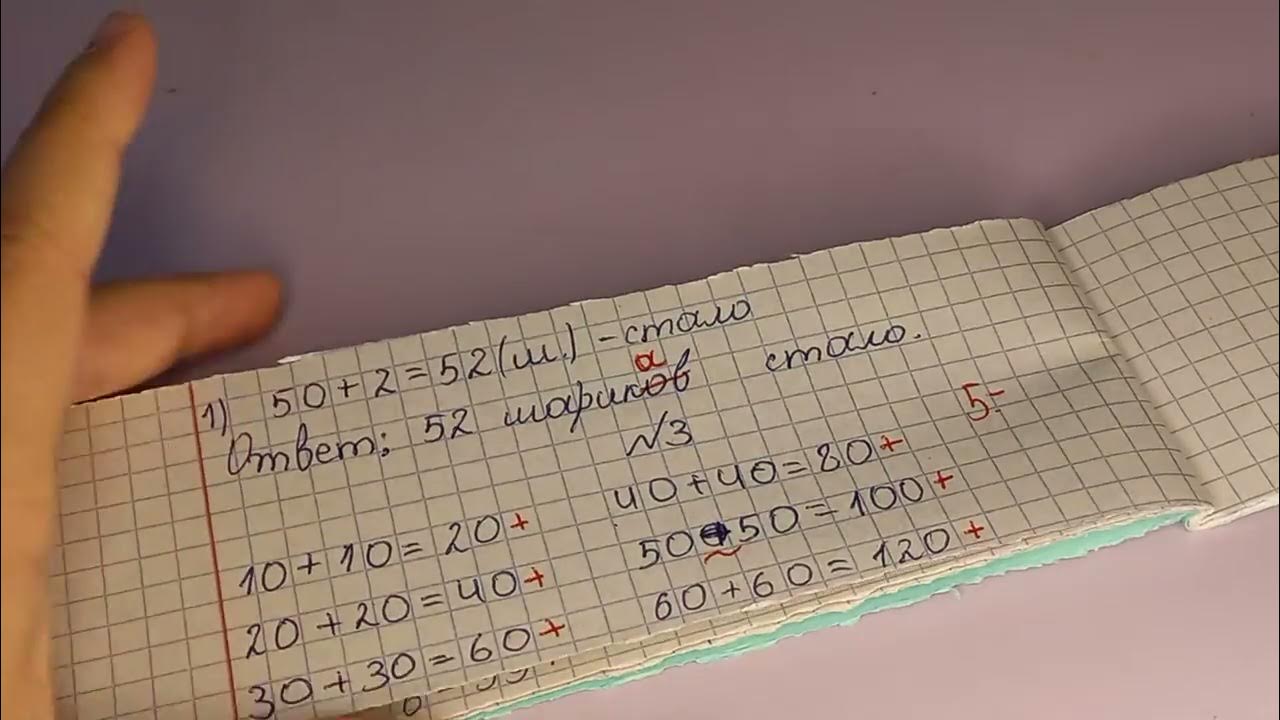 1) 50+2=52(ш.) - стало
Ответ: 52 шариков стало.
а
№3
5-
10+10=20+
20+20=40+
30+30=60+
40+40=80+
50+50=100+
60+60=120+